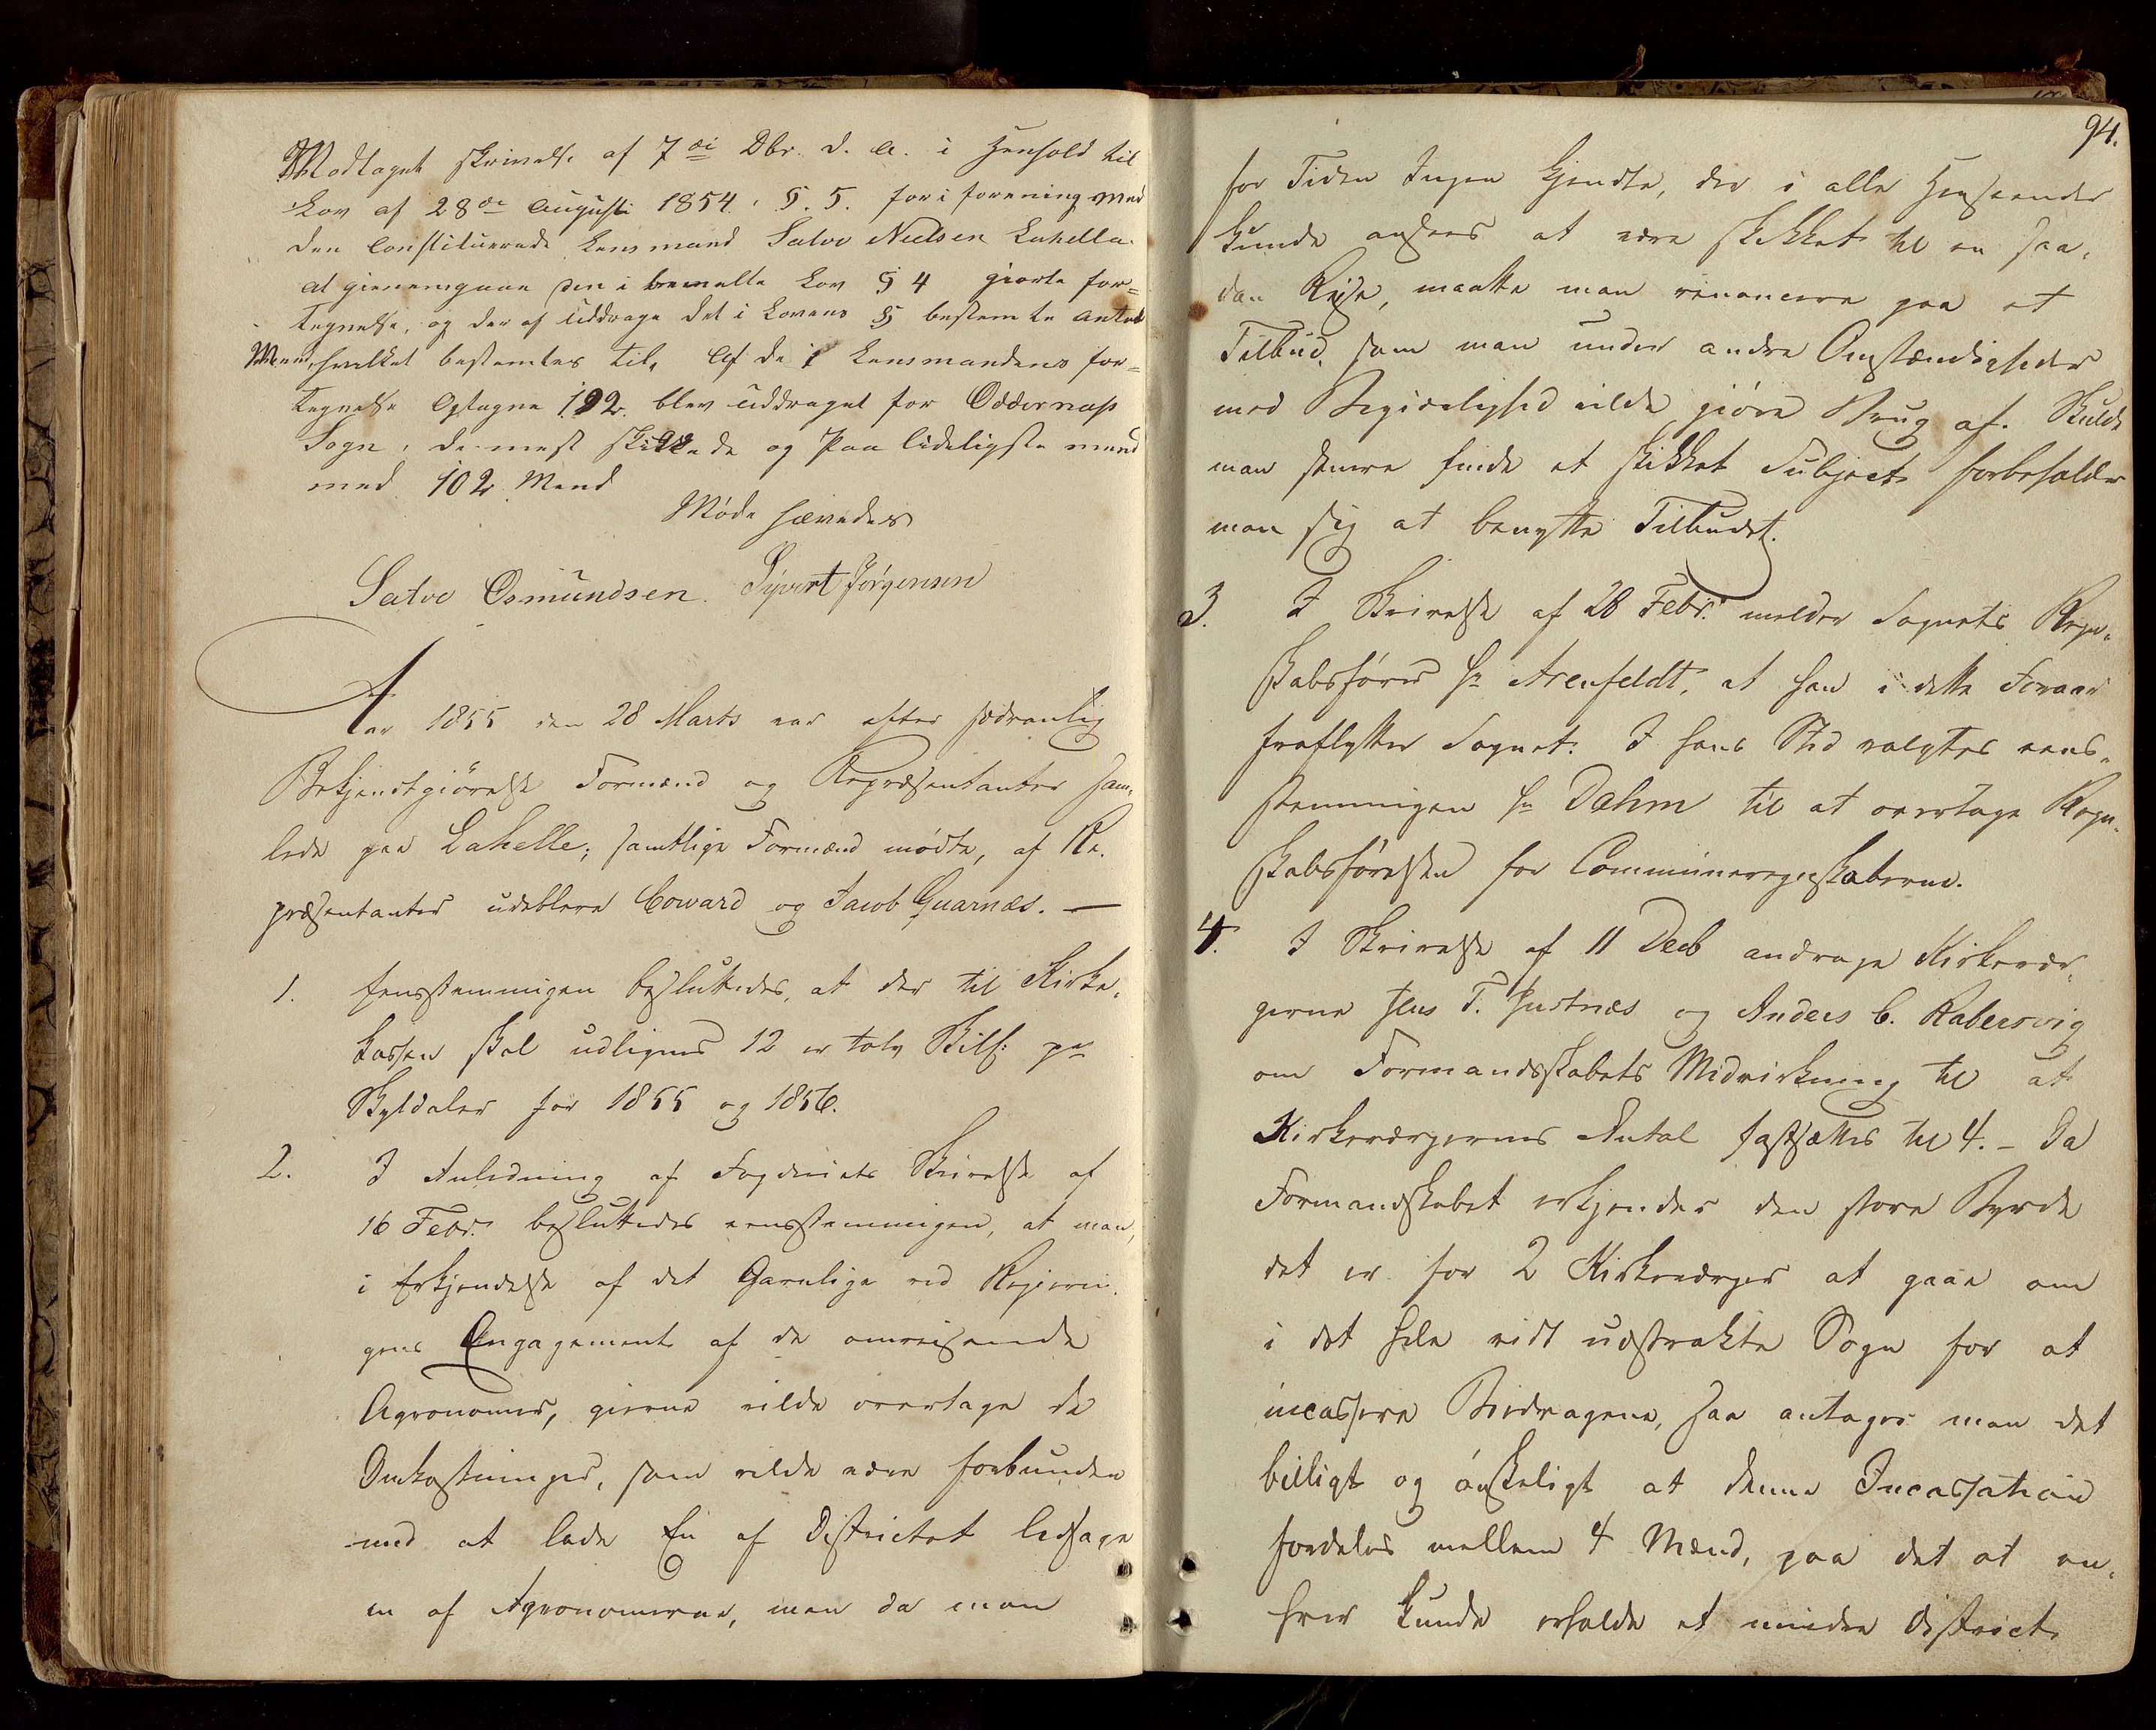 Modtaget skrivelse af 7de Dbr. d. A. i Henhold til
Lov af 28de Augusti 1854. §. 5. for i forening med
den Constituerede Lensmand Salve Nielsen Lahelle
at giennemgaae den i bemelte Lov § 4 giorte for-
tegnelse, og der af Uddrage det i Lovens § bestemte Antal
Mænd, hvilket bestemtes til, Af de i Lensmandens for-
tegnelse Optagne 192. blev uddraget for Oddernæs
Sogn, de mest skikkede og Paalideligste mænd
med 102 Mænd
Møde hævedes
Salve Osmundsen. Syvert Jørgensen
Aar 1855 den 28 Marts var efter sædvanlig
Bekjendtgiörelse Formænd og Repræsentanter sam-
lede paa Lahelle; samtlige Formænd mödte, af Re-
præsentanter udebleve Coward og Jacob Quarnæs. —
1. Eensstemmigen besluttedes, at der til Kirke-
kassen skal udlignes 12 er tolv Skill: pr
Skyldaler for 1855 og 1856.
2. I Anledning af Fogderiets Skrivelse af
16 Febr. besluttedes eensstemmigen, at man,
i Erkjendelse af det Gavnlige ved Regjerin-
gens Engagement af de omreisende
Agronomer, gierne vilde overtage de
Omkostninger, som vilde være forbunden
med at lade En af Districtet ledsage
en af Agronomerne, men da man
94.
for Tiden Ingen kjendte, der i alle Henseender
kunde ansees at være skikket til en saa-
dan Reise, maatte man renoncere paa et
Tilbud, som man under andre Omstændigheder
med Begjærlighed vilde giöre Brug af. Skulde
man senere finde et skikket Subject forbeholder
man sig at benytte Tilbudet.
3. I Skrivelse af 28 Febr. melder Sognets Regn-
skabsförer Hr Arenfeldt, at han i dette Foraar
fraflytter Sognet. I hans Sted valgtes eens-
stemmigen Hr Dahm til at overtage Regn-
skabsförelsen for Communeregnskaberne.
4. I Skrivelse af 11 Decb andrage Kirkevær-
gerne Jens T. Justnæs og Anders C. Rabersvig
om Formandsskabets Medvirkning til at
Kirkeværgernes Antal fastsættes til 4. – Da
Formandskabet erkjender den store Byrde
det er for 2 Kirkeværger at gaae om
i det hele vidt udstrakte Sogn for at
incassere Bidragene, saa antager man det
billigt og önskeligt at denne Incassation
fordeles mellem 4 Mænd, paa det at en-
hver kunde erholde et mindre District